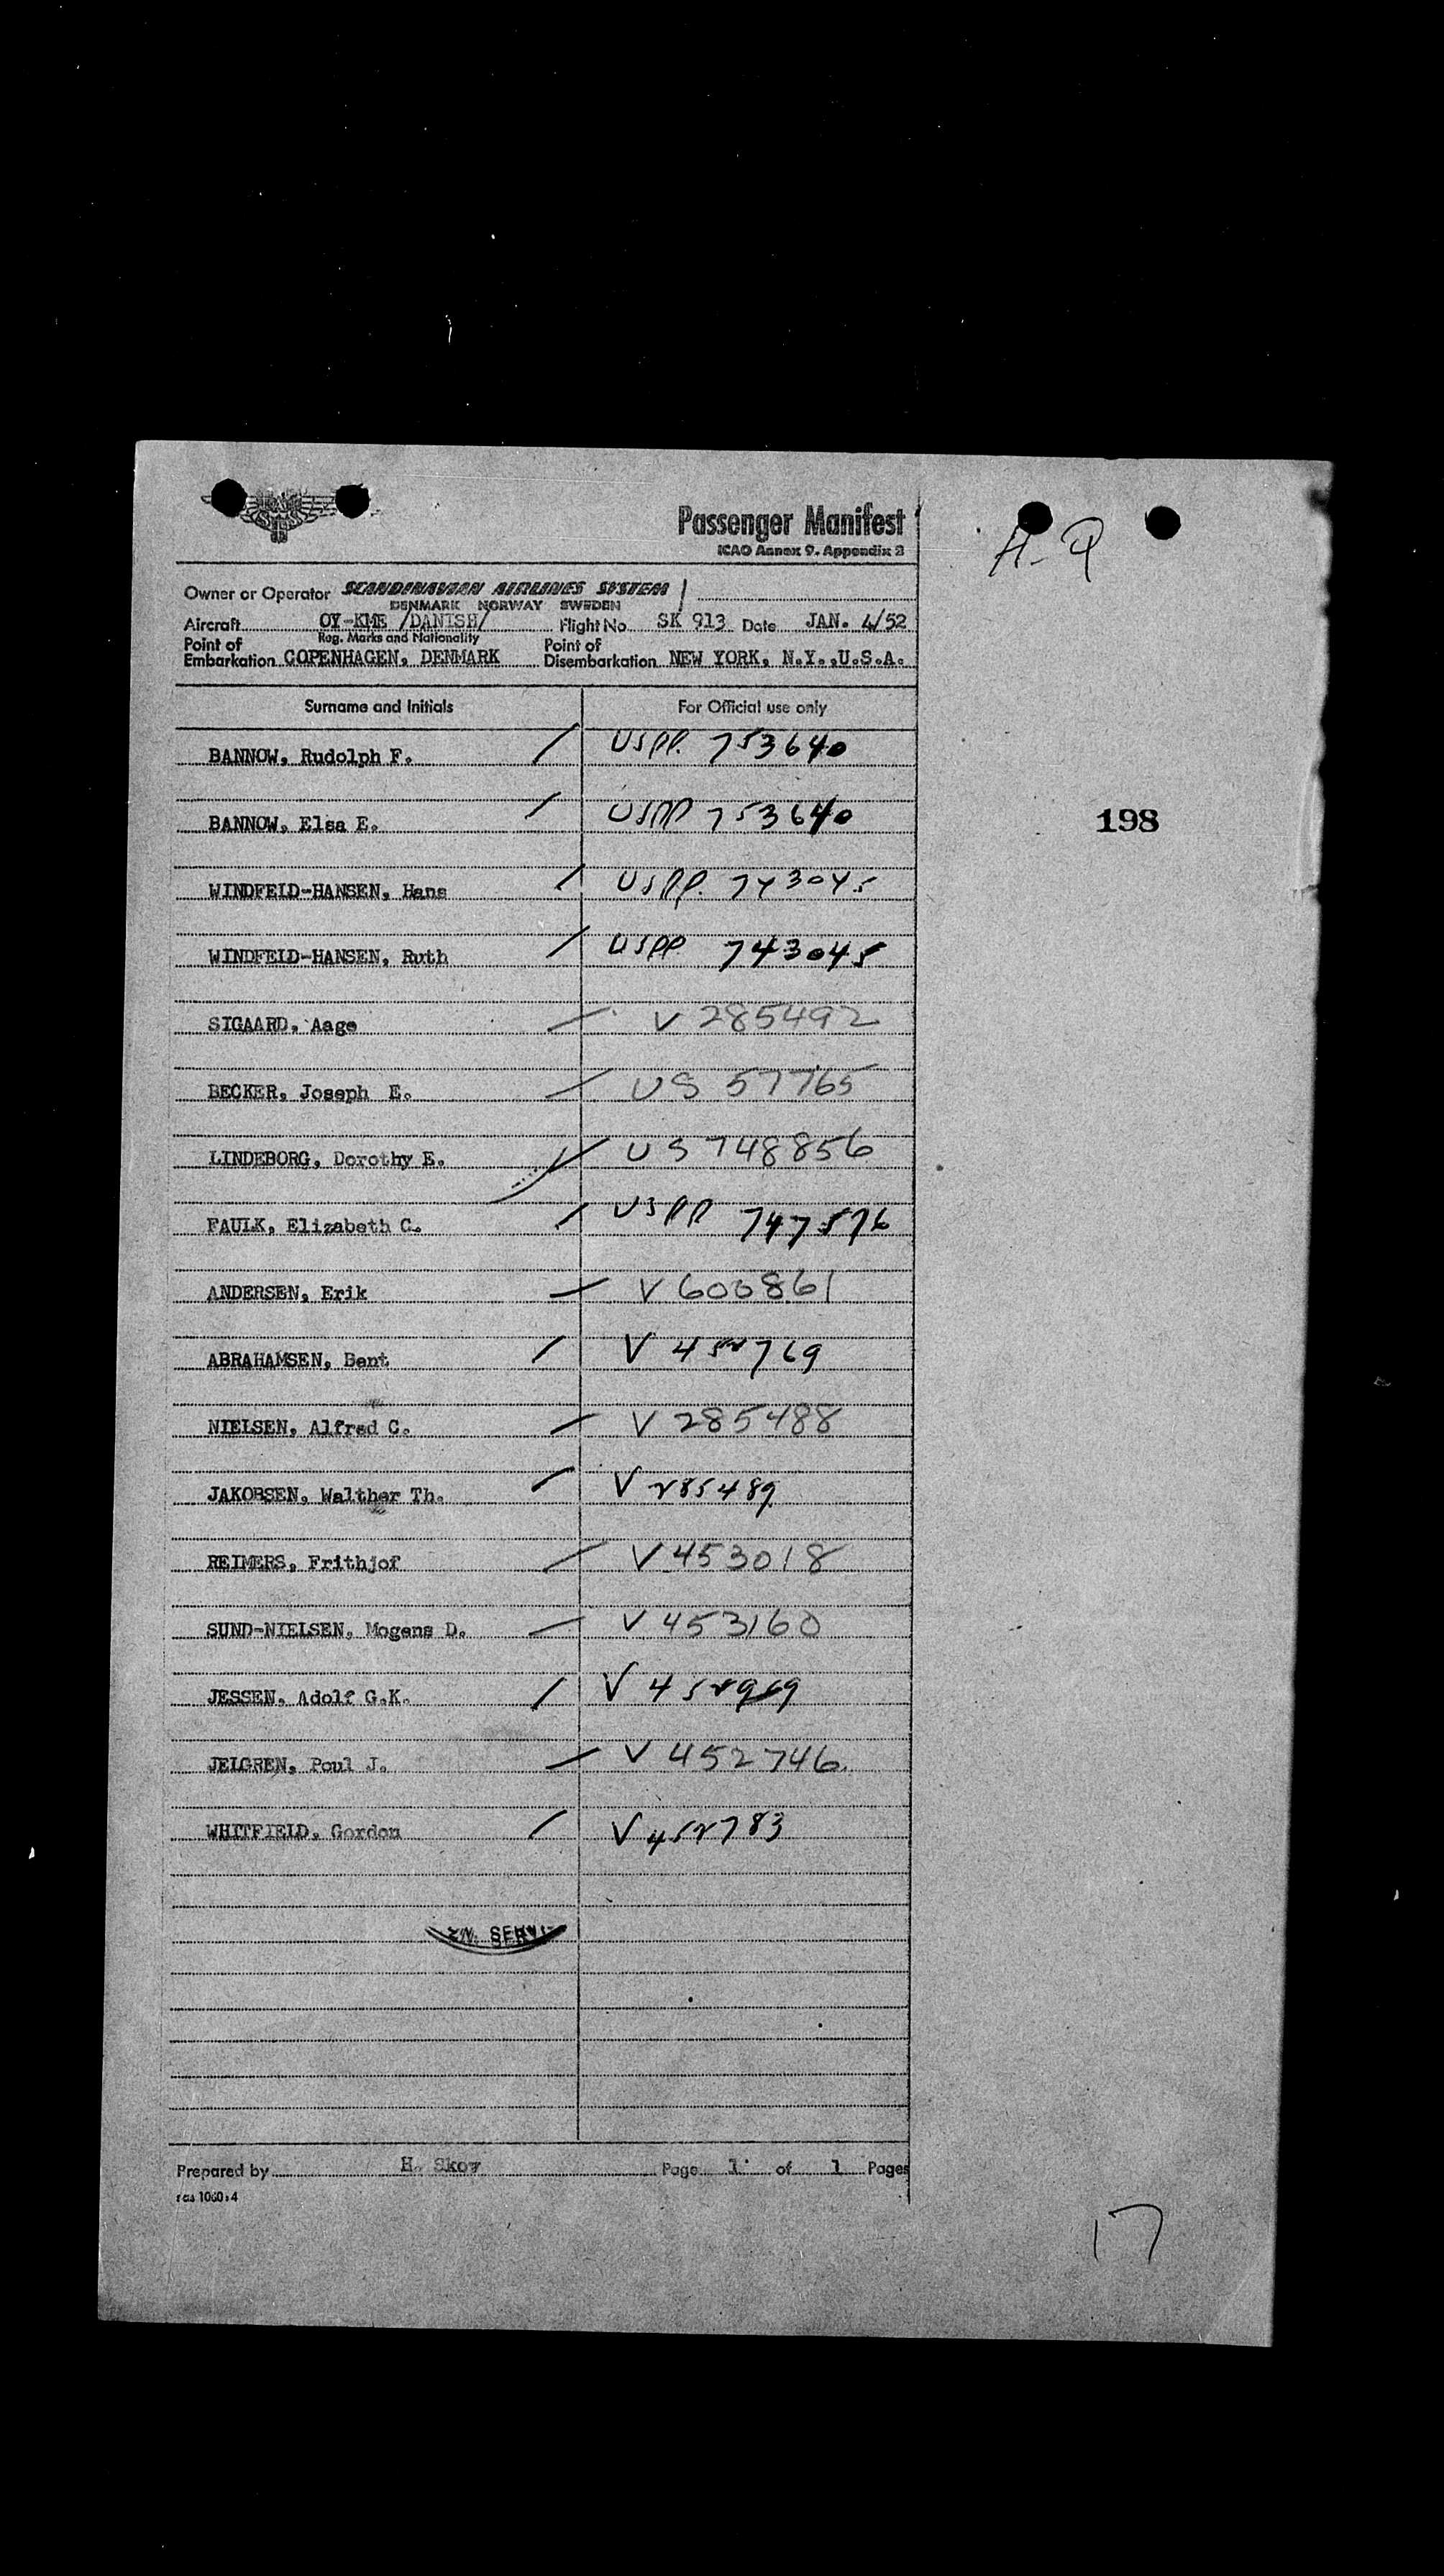 Passenger Manifest
ICAO Annex 9. Appendix 3
H-Q
Owner or Operator SCANDINAVIAN AIRLINES SYSTEM
DENMARK NORWAY SWEDEN
Aircraft OY-KME /DANISH/ Flight No. SK 913 Date JAN. 4/52
Reg. Marks and Nationality
Point of Embarkation COPENHAGEN, DENMARK Point of Disembarkation NEW YORK, N.Y.,U.S.A.
Surname and Initials For Official use only
BANNOW, Rudolph F. / USPP. 753640
BANNOW, Elsa E. / USPP 753640
198
WINDFELD-HANSEN, Hans / USPP. 743045
WINDFELD-HANSEN, Ruth / USPP 743045
SIGAARD, Aage V 285492
BECKER, Joseph E. US 57765
LINDEBORG, Dorothy E. US 748856
FAULK, Elizabeth C. / USPP 747576
ANDERSEN, Erik V 600861
ABRAHAMSEN, Bent / V 452769
NIELSEN, Alfred C. V 285488
JAKOBSEN, Walther Th. V 285489
REIMERS, Frithjof V 453018
SUND-NIELSEN, Mogens D. V 453160
JESSEN, Adolf G.K. / V 452969
JELGREN, Poul J. V 452746.
WHITFIELD, Gordon / V 452783
Prepared by H. Skov Page 1 of 1 Pages
17